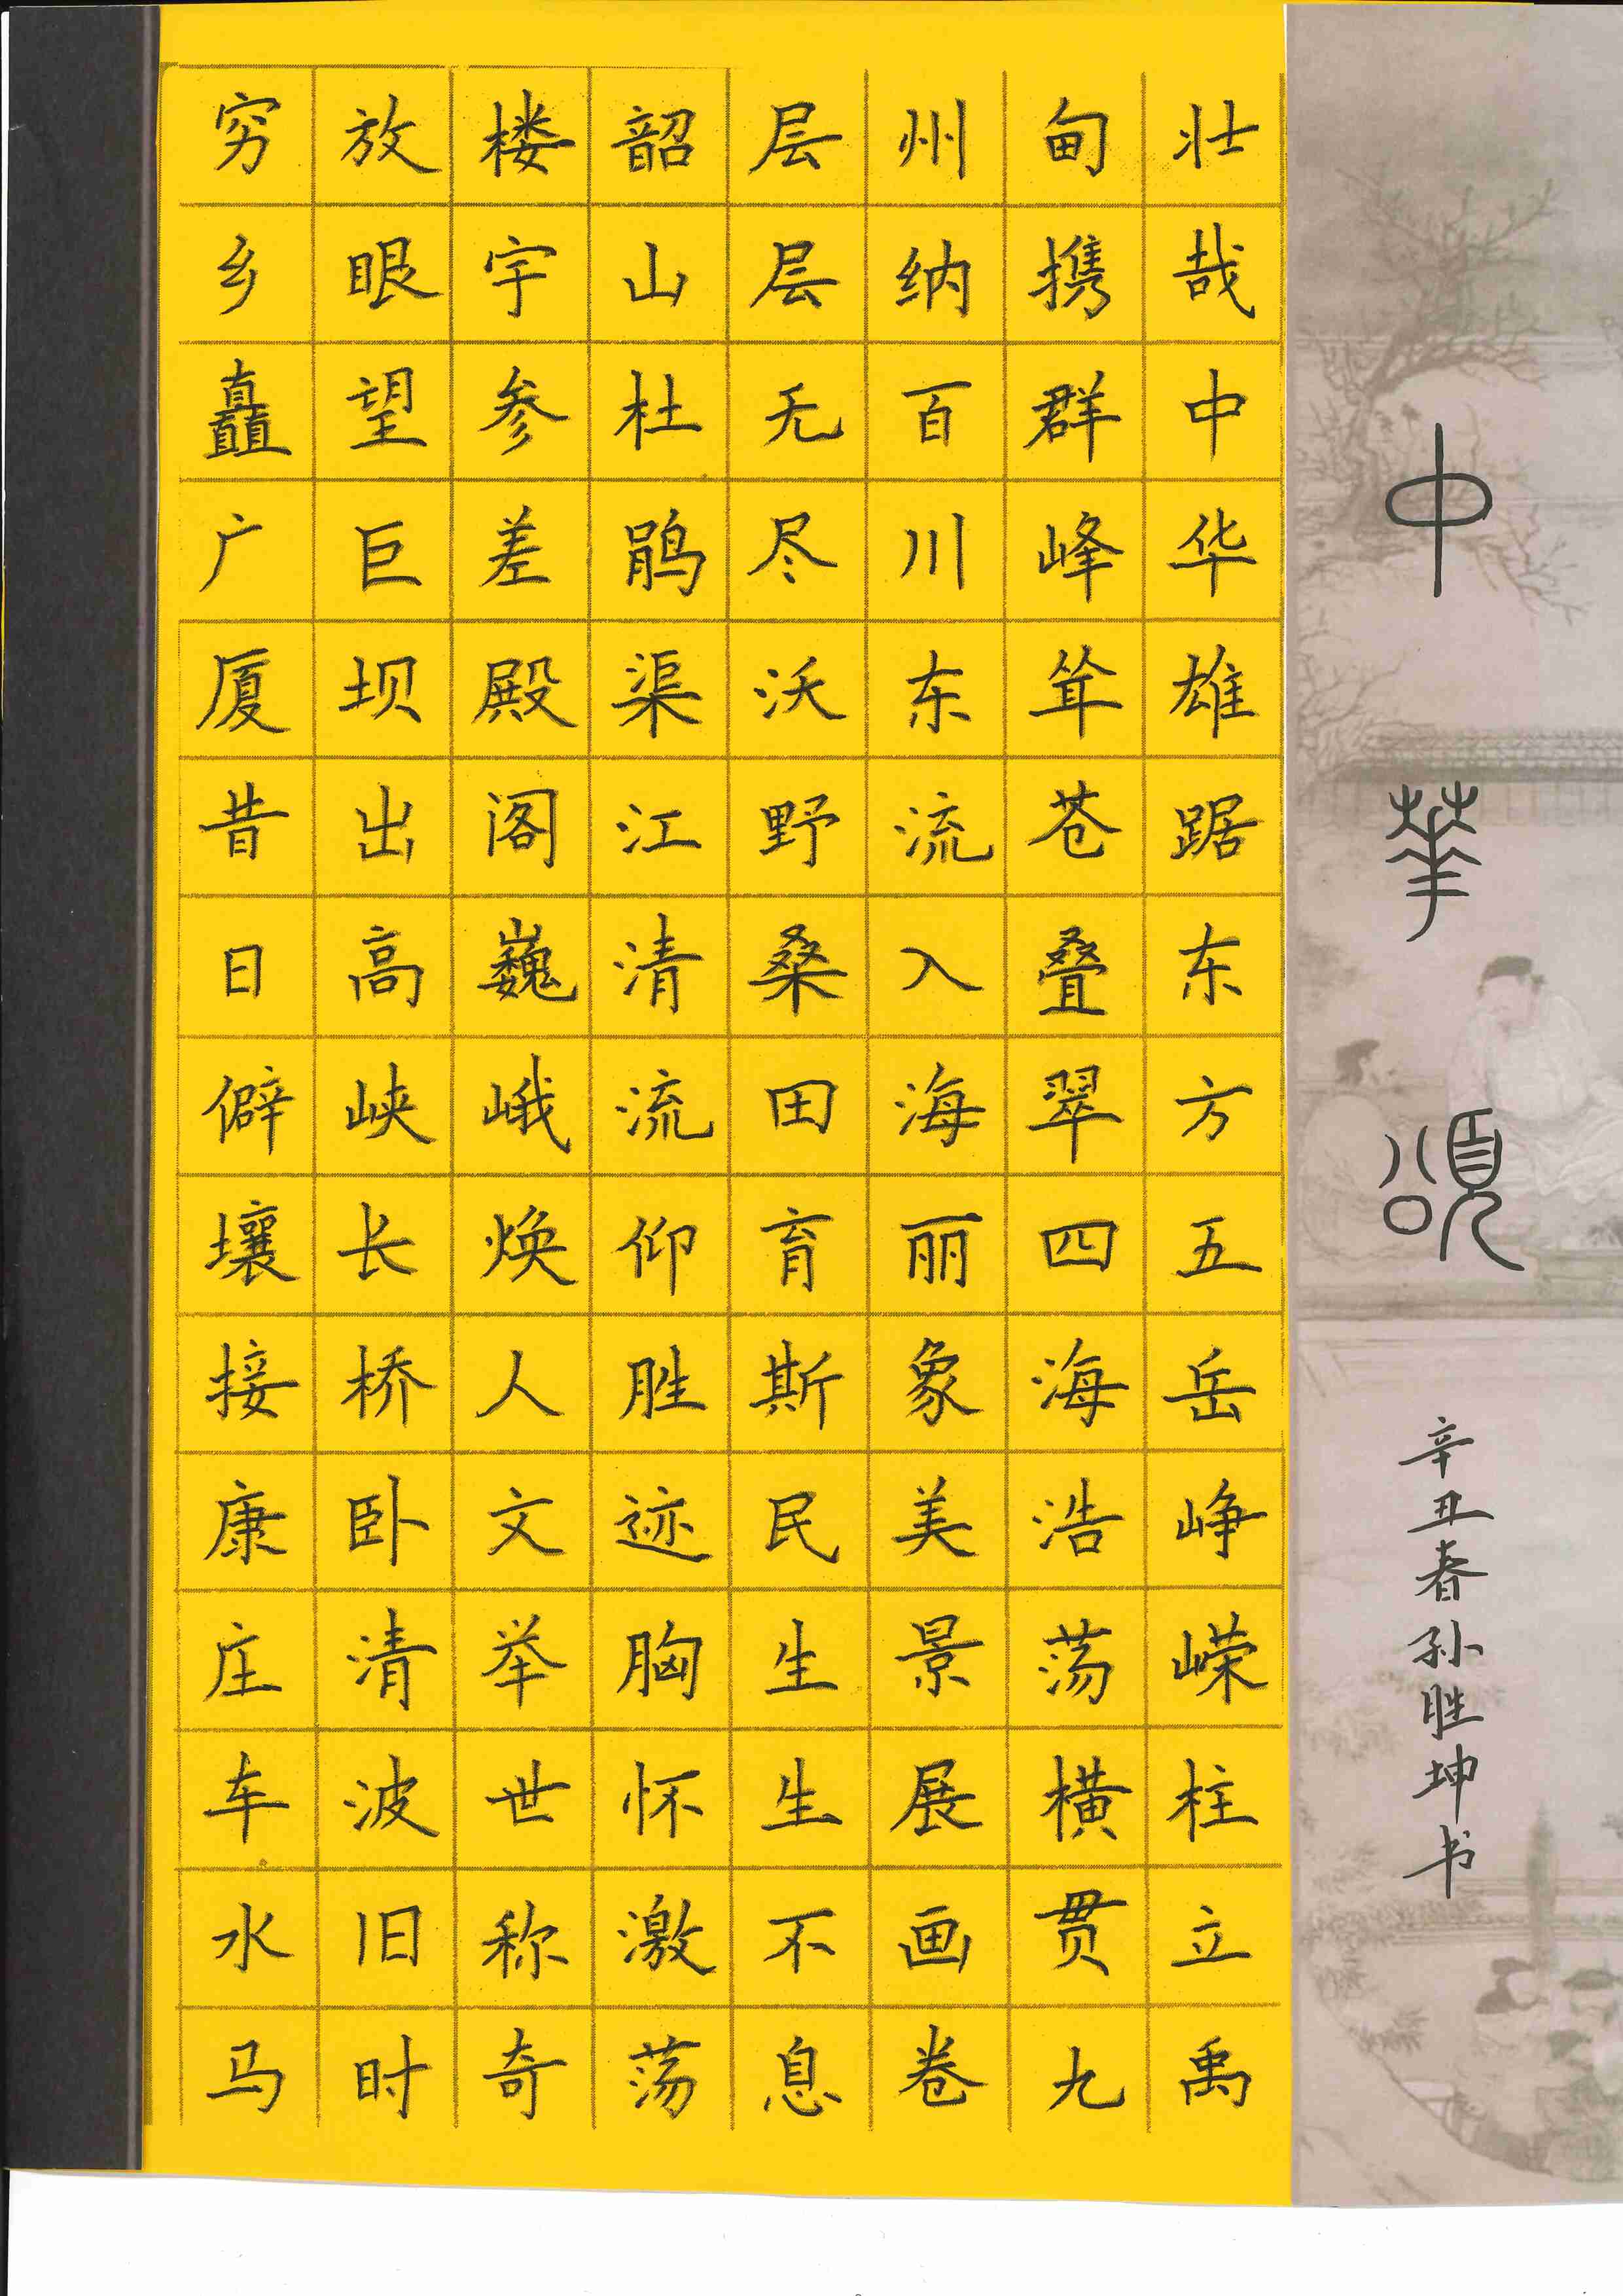 中華頌
辛丑春孙胜坤书
壮哉中华雄踞东方五岳峥嵘柱立禹
甸携群峰耸苍叠翠四海浩荡横贯九
州纳百川东流入海丽象美景展画卷
层层无尽沃野桑田育斯民生生不息
韶山杜鹃渠江清流仰胜迹胸怀激荡
楼宇参差殿阁巍峨焕人文举世称奇
放眼望巨坝出高峡长桥卧清波旧时
穷乡矗广厦昔日僻壤接康庄车水马